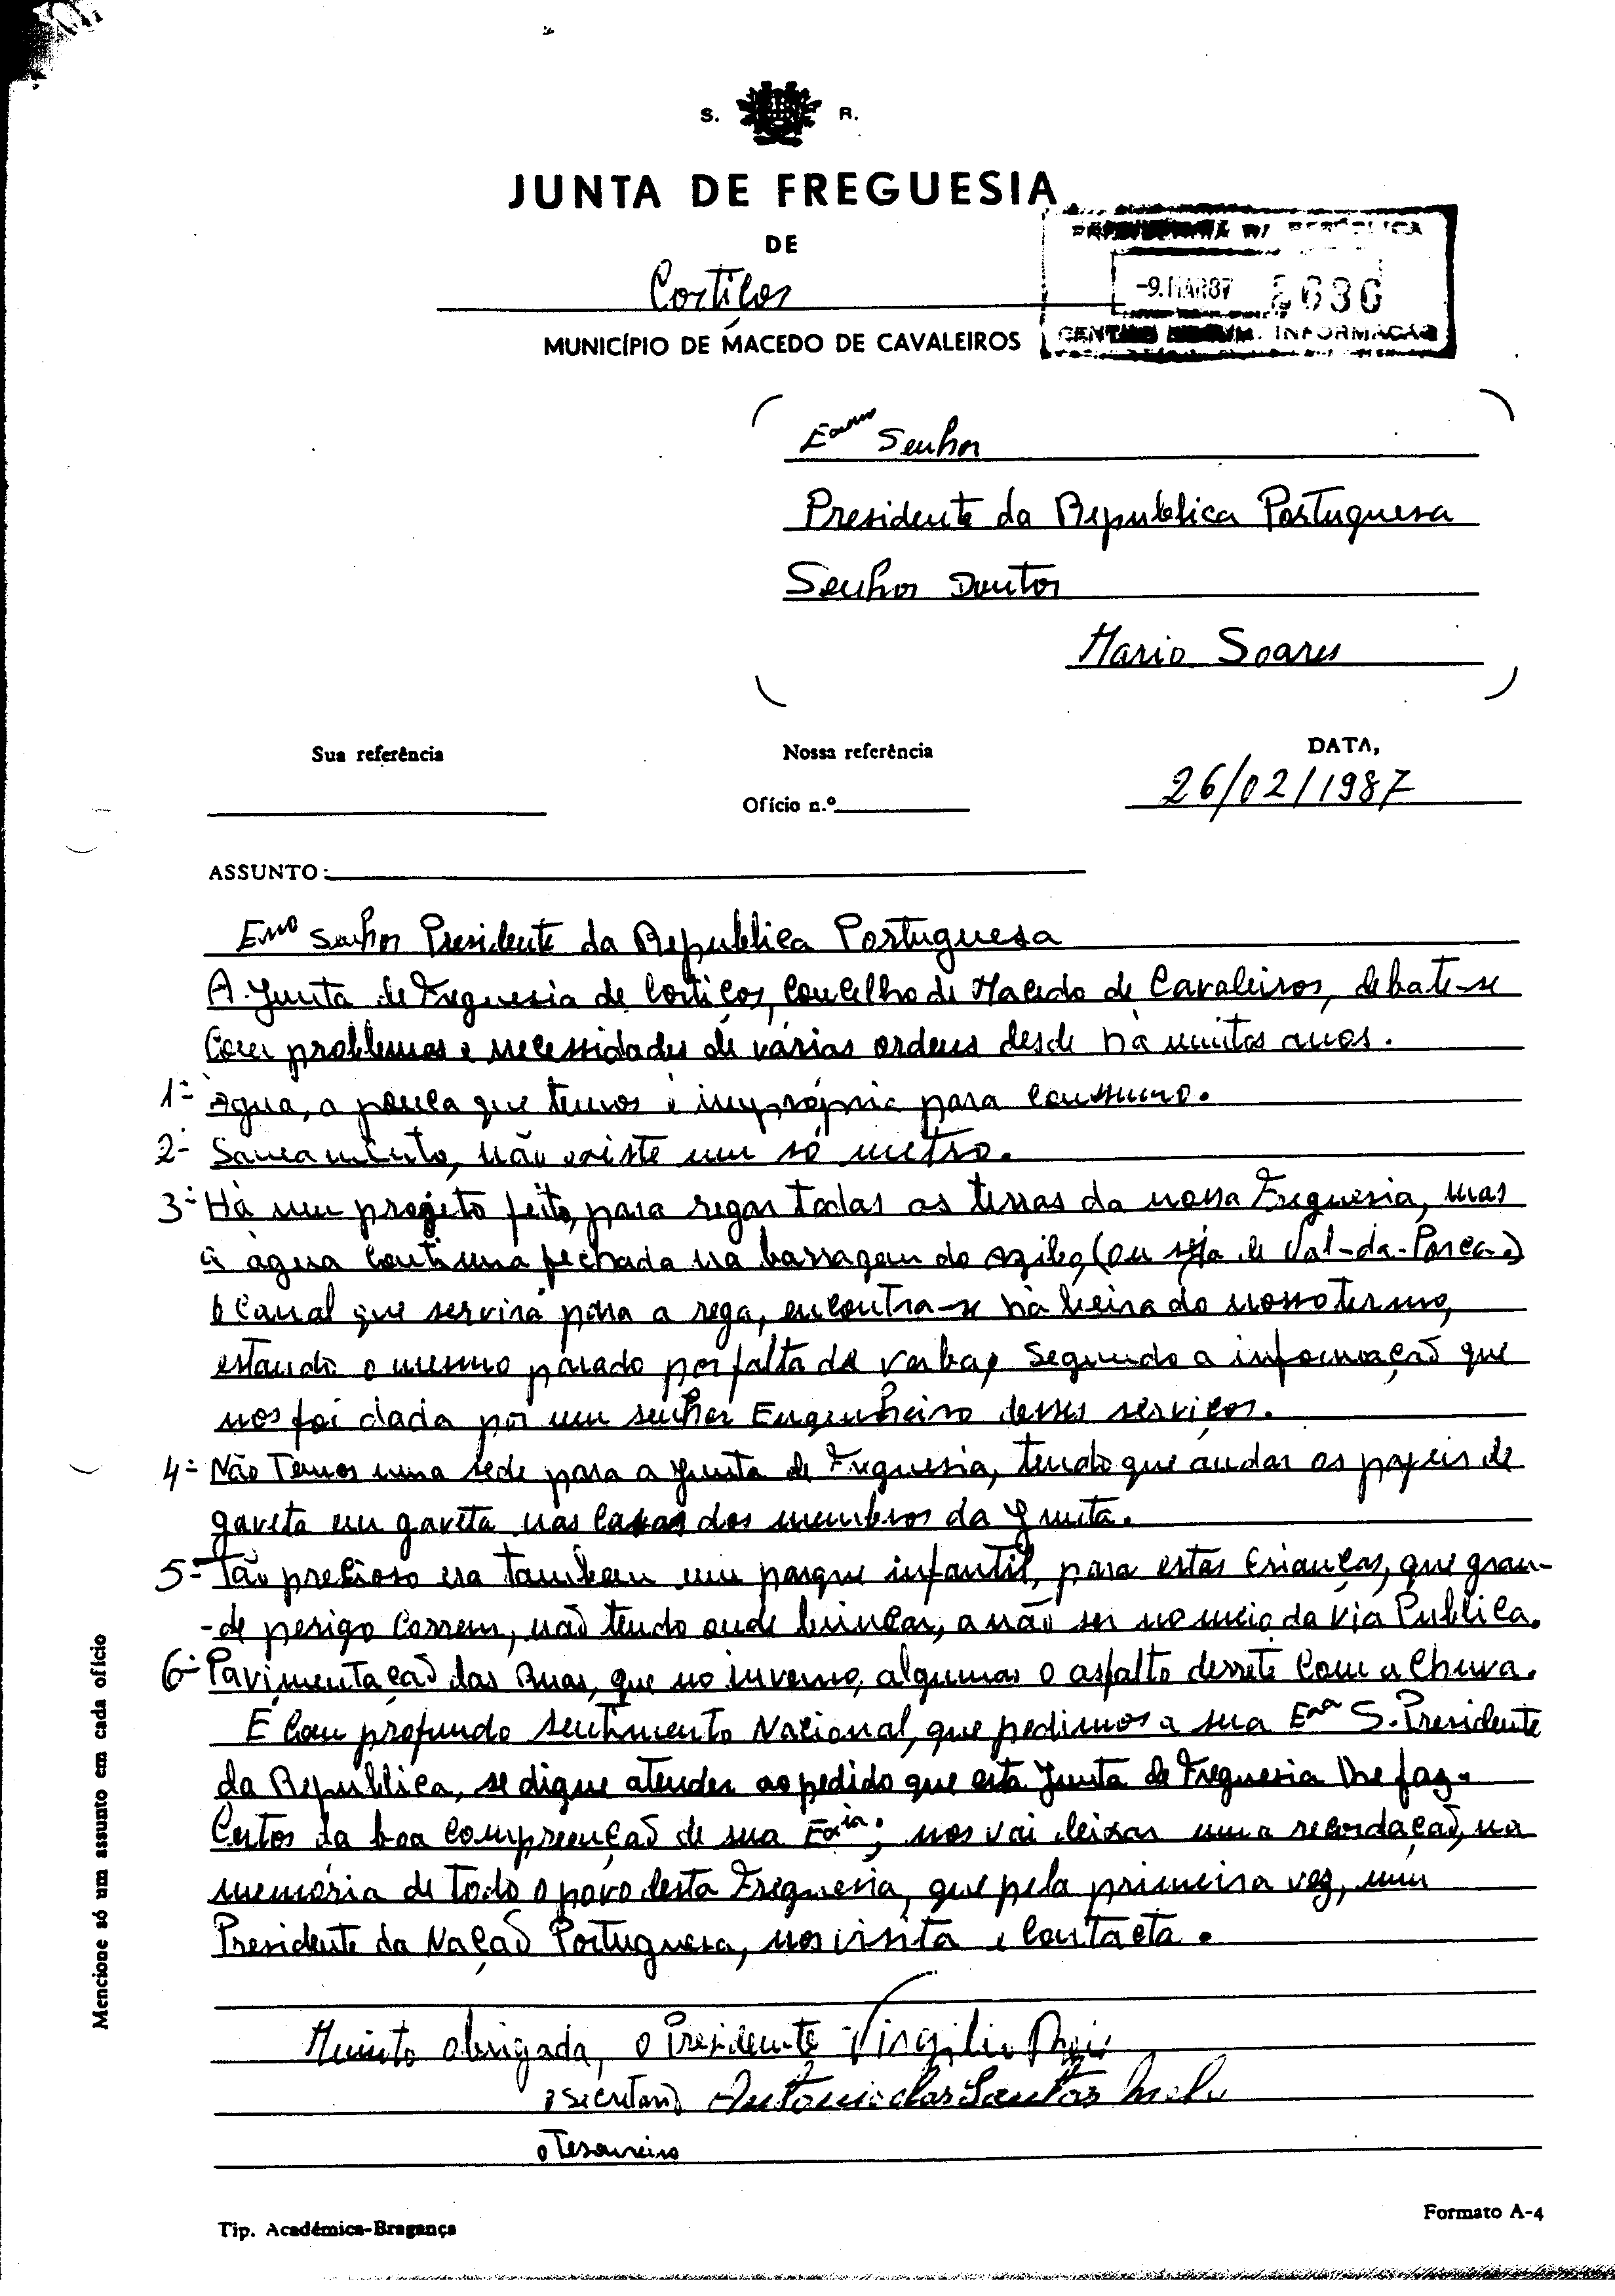 S. R.
JUNTA DE FREGUESIA
DE
Cortiços
MUNICÍPIO DE MACEDO DE CAVALEIROS
-9.MAR87
INFORMAÇÃO
Exmo Senhor
Presidente da Republica Portuguesa
Senhor Doutor
Mario Soares
Sua referência
Nossa referência
DATA,
Ofício n.º
26/02/1987
ASSUNTO:
Exmo Senhor Presidente da Republica Portuguesa
A Junta de Freguesia de Cortiços, Concelho de Macedo de Cavaleiros, debate-se
Com problemas e necessidades de várias ordens desde há muitos anos.
1º Agua, a pouca que temos é imprópria para consumo.
2º Saneamento, não existe um só metro.
3º Há um projeto feito, para regar todas as terras da nossa Freguesia, mas
a água continua fechada na barragem do Azibo, (ou seja de Val-da-Porca.)
O Canal que servirá para a rega, encontra-se há beira do nosso termo,
estando o mesmo parado por falta de verba, Segundo a informação que
nos foi dada por um senhor Engenheiro desses serviços.
4º Não Temos uma sede para a Junta de Freguesia, tendo que andar os papeis de
gaveta em gaveta nas casas dos membros da Junta.
5º Tão precioso era tambem um parque infantil, para estas Crianças, que gran-
-de perigo Correm, não tendo onde brincar, a não ser no meio da via Publica.
6º Pavimentação das Ruas, que no inverno, algumas o asfalto derrete Com a Chuva.
É Com profundo sentimento Nacional, que pedimos a sua Exa S. Presidente
da República, se digne atender ao pedido que esta Junta de Freguesia lhe faz.
Certos da boa Compreenção de sua Excia; nos vai deixar uma recordação, na
memória de todo o povo desta Freguesia, que pela primeira vez, um
Presidente da Nação Portuguesa, nos visita e Contacta.
Muinto obrigada, o Presidente Virgilio
o Secretario Antonio dos Santos Melo
o Tesoureiro
Mencione só um assunto em cada ofício
Tip. Académica-Bragança
Formato A-4